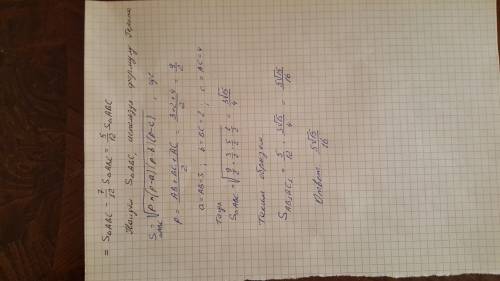 = S△ABC - 7/12 S△ABC = 5/12 S△ABC
Найдём S△ABC, используя формулу Герона
S△ABC = √(p·(p-a)(p-b)(p-c)), где
p = (AB+BC+AC)/2 = (3+2+4)/2 = 9/2
a = AB = 3; b = BC = 2; c = AC = 4
Тогда
S△ABC = √(9/2 · 3/2 · 5/2 · 1/2) = 3√15/4
Таким образом,
= 5/12 · 3√15/4 = 5√15/16
Ответ: 5√15/16